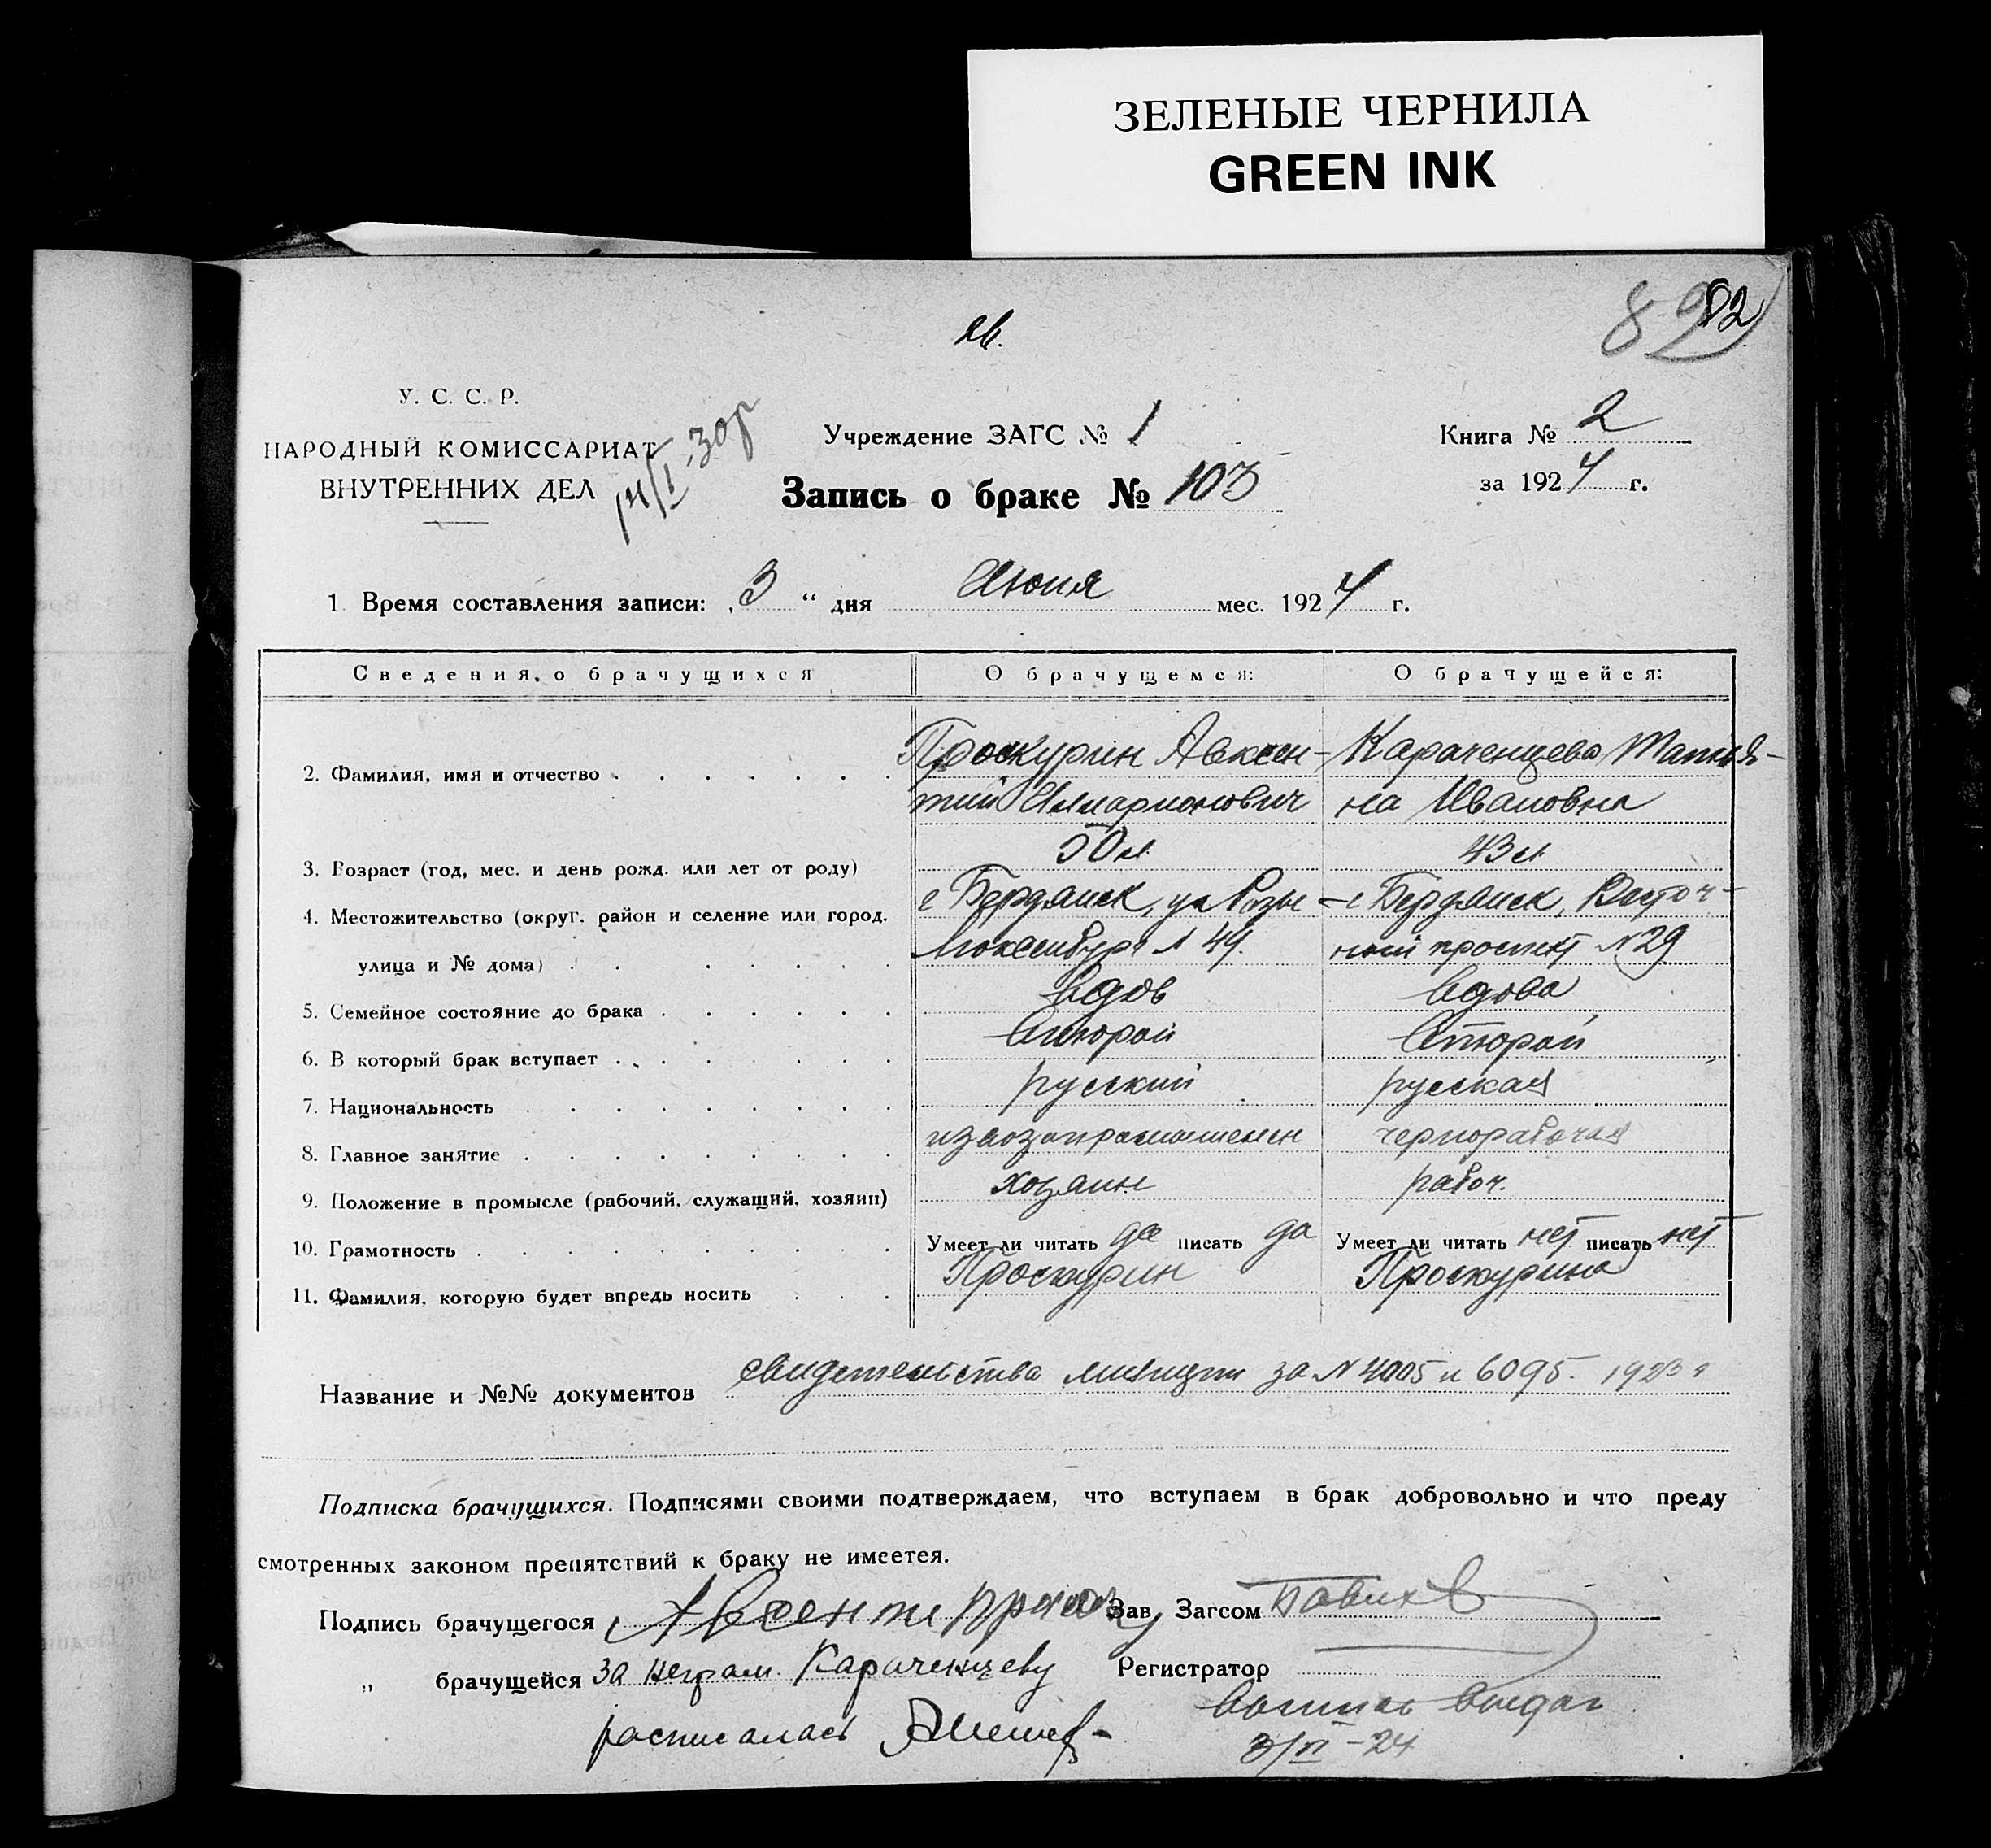 ЗЕЛЕНЫЕ ЧЕРНИЛА
GREEN INK
82
У. С. С. Р.
НАРОДНЫЙ КОМИССАРИАТ
ВНУТРЕННИХ ДЕЛ
Учреждение ЗАГС № 1
Книга № 2
Запись о браке № 103
за 1924 г.
1 Время составления записи: „3“ дня Июня мес. 1924 г.
Сведения о брачущихся О брачущемся: О брачущейся:
2. Фамилия, имя и отчество Проскурин Авксен- Караченцева Татья-
тий Илларионович на Ивановна
3. Возраст (год, мес. и день рожд. или лет от роду) 50 л. 43 л.
4. Местожительство (округ, район и селение или город, г Бердянск, ул Розы г Бердянск, Восточ-
улица и № дома) Люксембург № 49. ный проспект №29
5. Семейное состояние до брака вдов вдова
6. В который брак вступает второй второй
7. Национальность русский русская
8. Главное занятие чернорабочая
9. Положение в промысле (рабочий, служащий, хозяин) хозяин рабоч.
10. Грамотность Умеет ли читать да писать да Умеет ли читать нет писать нет
11. Фамилия, которую будет впредь носить Проскурин Проскурина
Название и №№ документов свидетельства милиции за № 4005 и 6095. 1923 г
Подписка брачущихся. Подписями своими подтверждаем, что вступаем в брак добровольно и что преду
смотренных законом препятствий к браку не имеется.
Подпись брачущегося Зав. Загсом
„ брачущейся за неграм. Караченцеву Регистратор
расписалась
3/VI-24